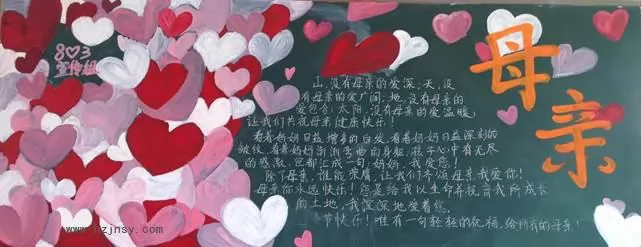 803
宣传组
母亲
山,没有母亲的爱深;天,没
有母亲的爱广阔;地,没有母亲的
爱包含;太阳,没有母亲的爱温暖,
让我们共祝母亲健康快乐
看着妈妈日益增多的白发,看着妈妈日益深刻的
皱纹,看着妈妈渐渐弯曲的身躯,孩子心中有无尽
的感激,但都汇成一句:妈妈,我爱您!
除了母亲,谁能荣膺,让我们齐颂母亲我爱你!
母亲你永远快乐!您是给我以生命并抚育我所成长
的土地,我深深地爱着您
节快乐!唯有一句轻轻的祝福,给所有的母亲!
www.hzjnsy.com